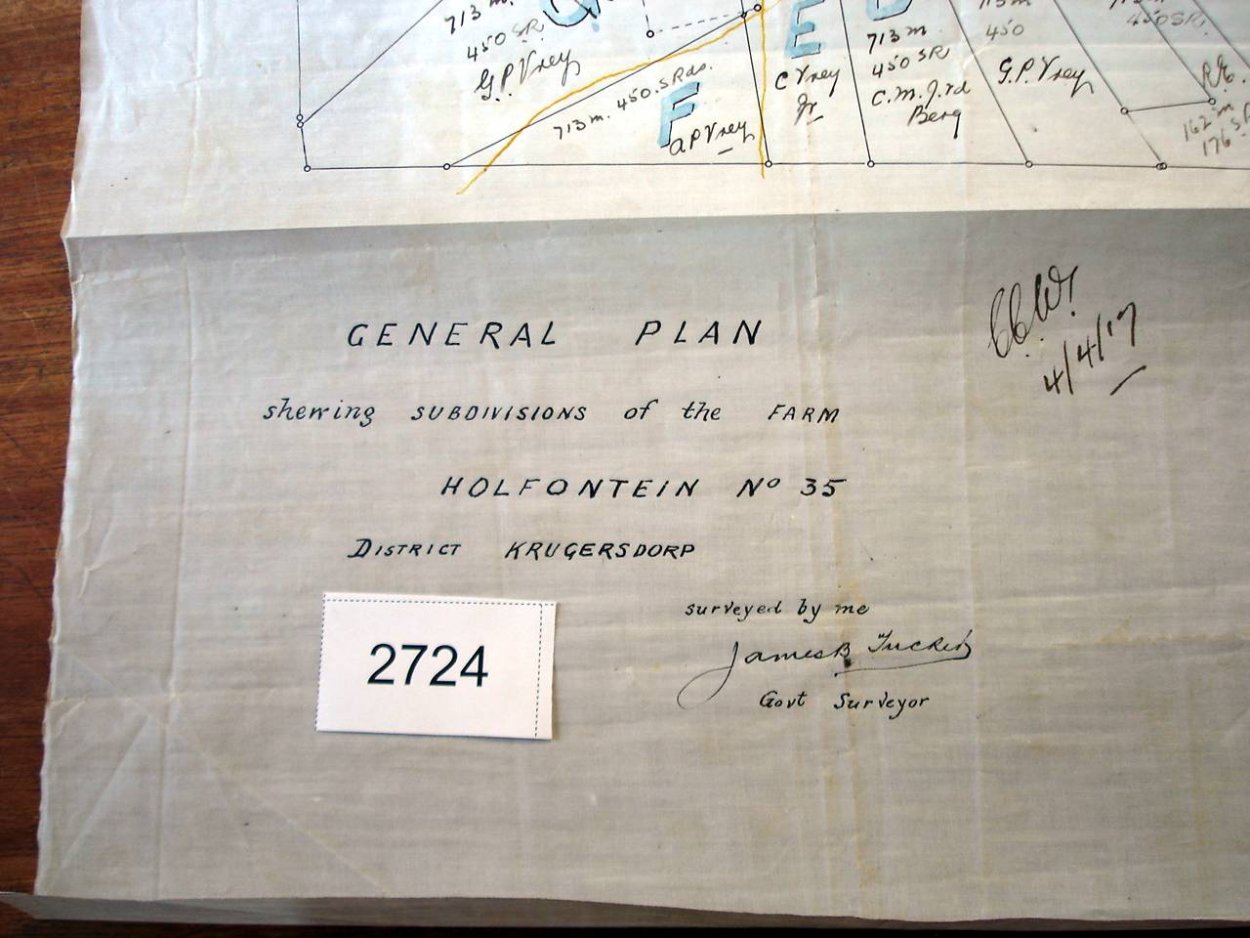 713 m.
450 SR.
G.P. Vrey
713 m. 450. SRds.
F
A P Vrey
E
C Vrey
Jr
713 m
450 SR
C.M.J. vd
Berg
713 m
450
G.P. Vrey
450 SR.
R.E.
162 m
176 S.R
GENERAL PLAN
shewing SUBDIVISIONS of the FARM
HOLFONTEIN No 35
DISTRICT KRUGERSDORP
surveyed by me
James B Tucker
Govt Surveyor
4/4/17
2724